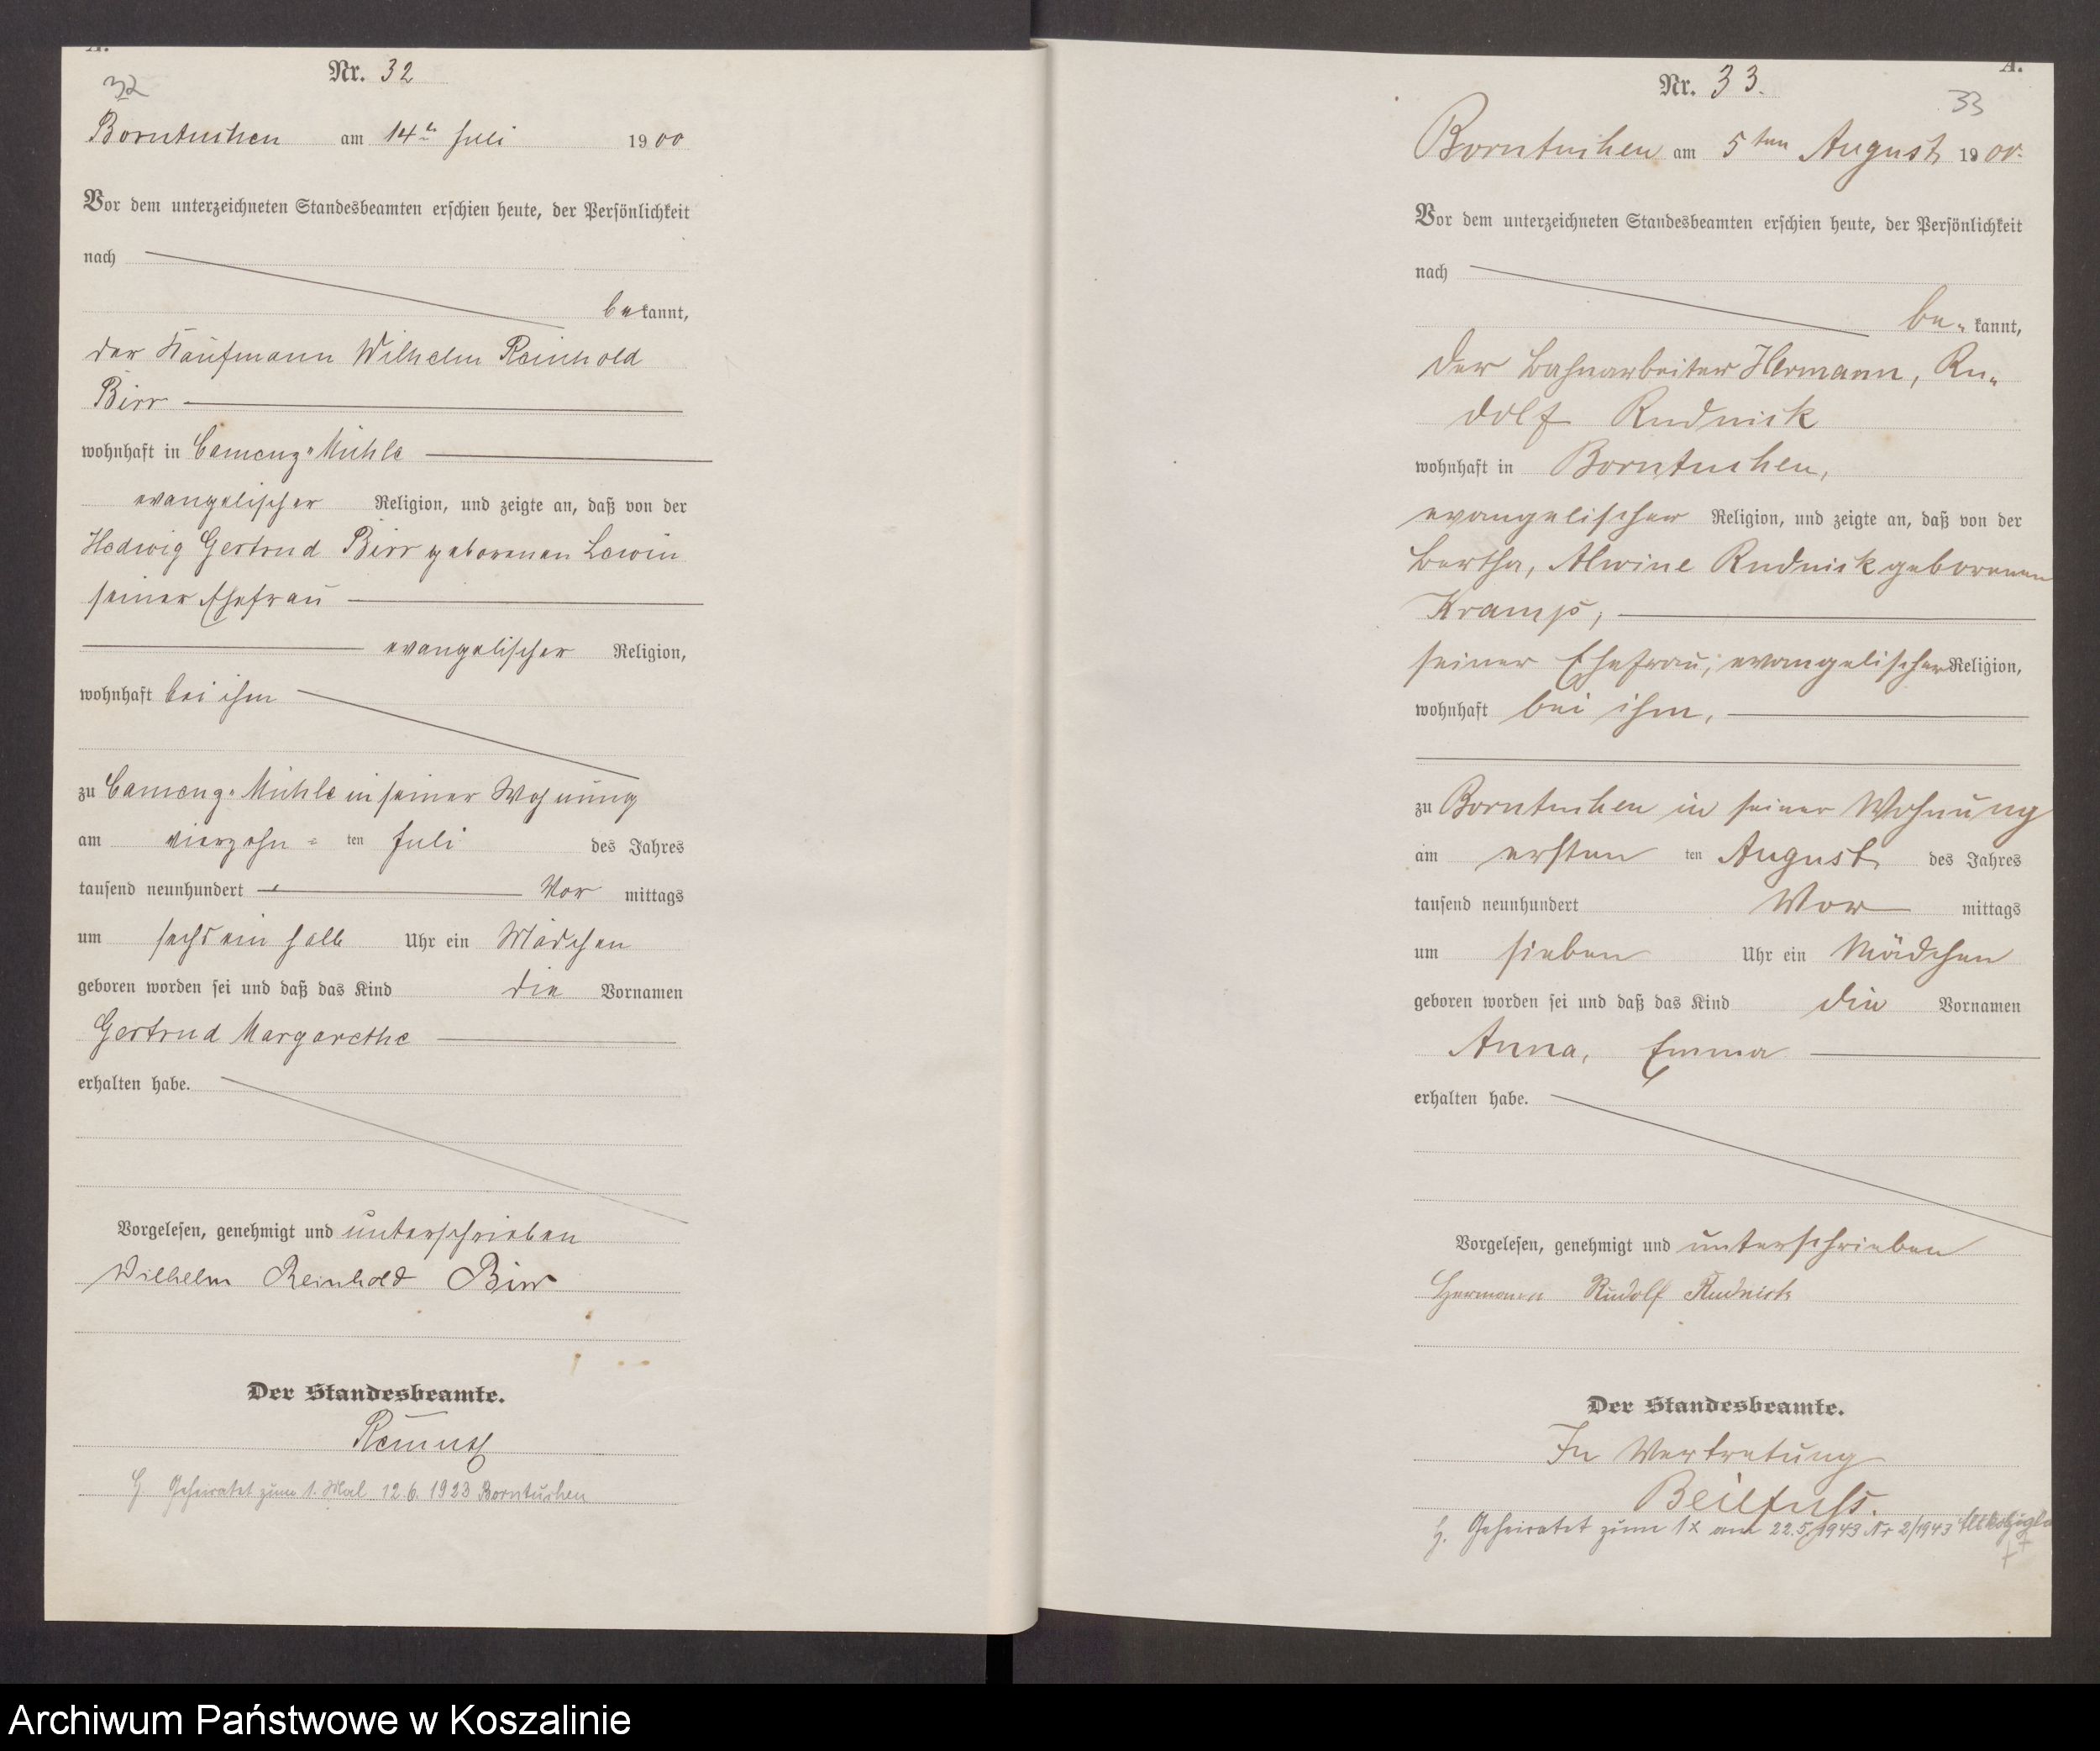 A.
Nr. 32
32
Borntuchen am 14t Juli 1900
Vor dem unterzeichneten Standesbeamten erschien heute, der Persönlichkeit
nach
bekannt,
der Kaufmann Wilhelm Reinhold
Birr
wohnhaft in Camenz-Mühle
evangelischer Religion, und zeigte an, daß von der
Hedwig Gertrud Birr geborenen Lewin
seiner Ehefrau
evangelischer Religion,
wohnhaft bei ihm
zu Camenz-Mühle in seiner Wohnung
am vierzehn-ten Juli des Jahres
tausend neunhundert Vormittags
um sechs ein halb Uhr ein Mädchen
geboren worden sei und daß das Kind die Vornamen
Gertrud Margarethe
erhalten habe.
Vorgelesen, genehmigt und unterschrieben
Wilhelm Reinhold Birr
Der Standesbeamte.
Geheiratet zum 1. Mal 12.6.1923 Borntuchen
A.
Nr. 33.
33
Borntuchen am 5ten August 1900.
Vor dem unterzeichneten Standesbeamten erschien heute, der Persönlichkeit
nach
be-kannt,
der Bahnarbeiter Hermann, Ru-
dolf Rudnick
wohnhaft in Borntuchen,
evangelischer Religion, und zeigte an, daß von der
Bertha, Alwine Rudnick geborenen
Kramp,
seiner Ehefrau, evangelischer Religion,
wohnhaft bei ihm,
zu Borntuchen in seiner Wohnung
am ersten ten August des Jahres
tausend neunhundert Vor mittags
um sieben Uhr ein Mädchen
geboren worden sei und daß das Kind die Vornamen
Anna, Emma
erhalten habe.
Vorgelesen, genehmigt und unterschrieben
Hermann Rudolf Rudnick
Der Standesbeamte.
In Vertretung
Beilfuss.
Geheiratet zum 1x am 22.5.1943 Nr 2/1943
Archiwum Państwowe w Koszalinie